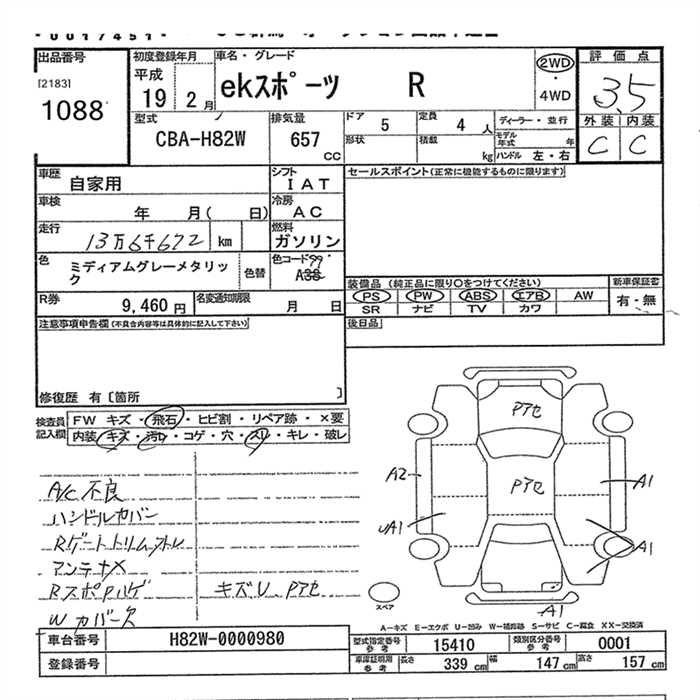 0017451
出品番号
[2183]
1088
初度登録年月
平成
19 2月
車名・グレード
ekスポーツ R
2WD
・
4WD
評価点
3.5
外装 内装
C C
型式
CBA-H82W
排気量
657
CC
ドア
5
定員
4 人
形状
積載
kg
ディーラー・並行
モデル年式 年
ハンドル 左・右
車歴
自家用
シフト
IAT
車検
年 月( 日)
冷房
AC
走行
13万6千672 km
燃料
ガソリン
色
ミディアムグレーメタリック
色替
色コード
A38
セールスポイント(正常に機能するものに限ります)
装備品 (純正品に限り○をつけてください)
PS PW ABS エアB AW
SR ナビ TV カワ
新車保証書
有・無
後日品
R券
9,460 円
名変通知期限
月 日
注意事項申告欄(不具合内容等は具体的に記入して下さい)
修復歴 有〔箇所 〕
検査員記入欄
FW キズ・飛石・ヒビ割・リペア跡・×要
内装・キズ・汚れ・コゲ・穴・スレ・キレ・破レ
A/C不良
ハンドルカバー
Rゲートトリム
アンテナ
キズU、Pアセ
Pアセ
Pアセ
A2
A1
A1
A1
スペア
A1
A-キズ E-エクボ U-凹み W-補修跡 S-サビ C-腐食 XX-交換済
車台番号
H82W-0000980
登録番号
型式指定番号
参考
15410
類別区分番号
参考
0001
車庫証明用
参考
長さ
339 cm
幅
147 cm
高さ
157 cm